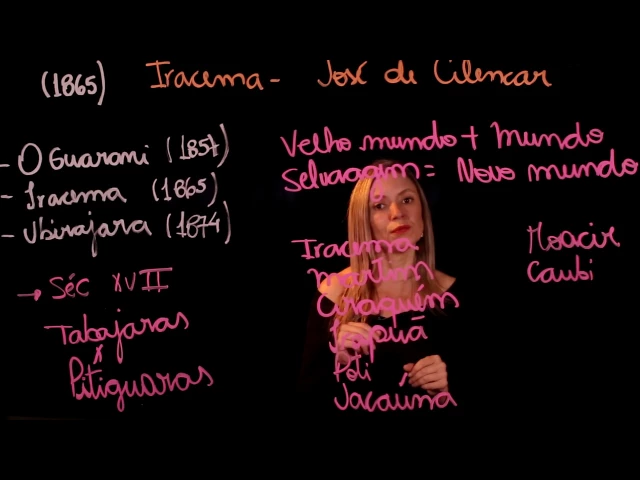 (1865) Iracema - José de Alencar
- O Guarani (1857)
- Iracema (1865)
- Ubirajara (1874)
→ Séc XVII
Tabajaras
x
Pitiguaras
Velho mundo + Mundo
Selvagem = Novo mundo
Iracema
Martim
Araquém
Irapuã
Poti
Jacaúna
Moacir
Caubi